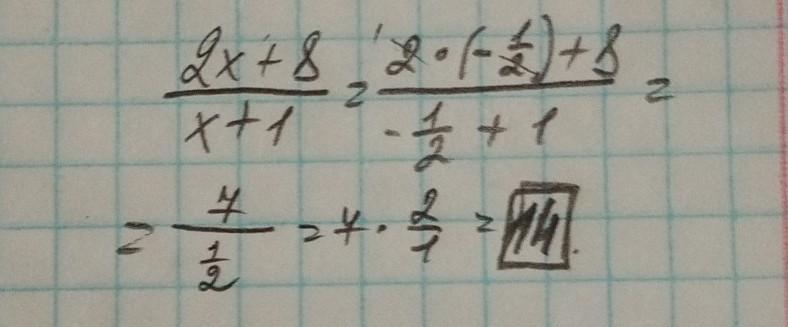 (2x+8)/(x+1) = (2·(-1/2)+8)/(-1/2+1) =
= 7/(1/2) = 7·2/1 = 14.